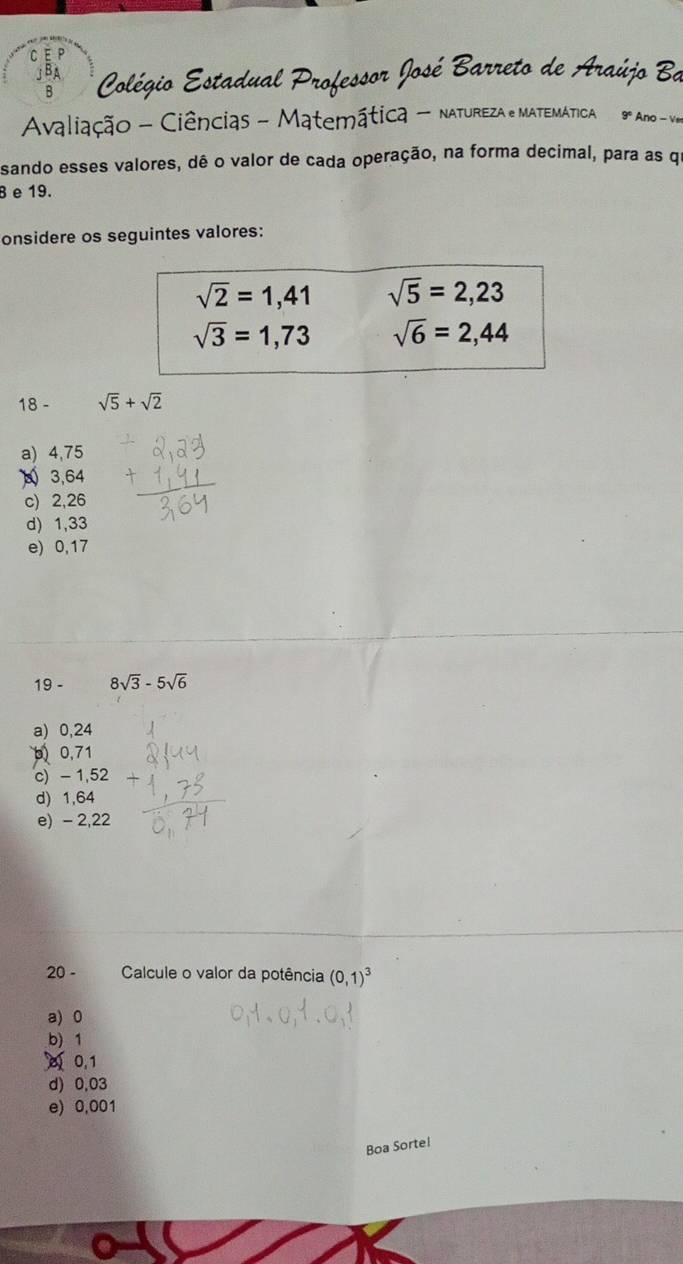 C E P
J B A
B
Colégio Estadual Professor José Barreto de Araújo Ba
Avaliação - Ciências - Matemática - NATUREZA e MATEMÁTICA 9º Ano - Ves
sando esses valores, dê o valor de cada operação, na forma decimal, para as q
8 e 19.
onsidere os seguintes valores:
√2 = 1,41 √5 = 2,23
√3 = 1,73 √6 = 2,44
18 - √5 + √2
a) 4,75
3,64
c) 2,26
d) 1,33
e) 0,17
2,23
+ 1,41
3,64
19 - 8√3 - 5√6
a) 0,24
b) 0,71
c) – 1,52
d) 1,64
e) – 2,22
1
2,44
+ 1,73
0,74
20 - Calcule o valor da potência (0,1)³
0,1.0,1.0,1
a) 0
b) 1
0,1
d) 0,03
e) 0,001
Boa Sorte!